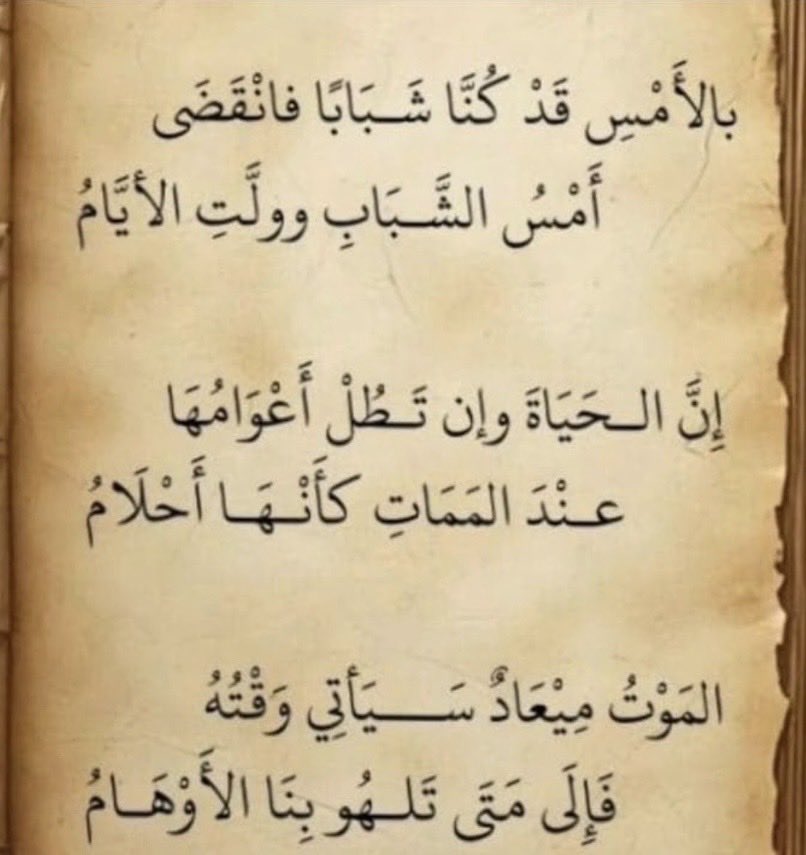 بالأَمْسِ قَدْ كُنَّا شَـبَابًا فانْقَضَى
أَمْسُ الشَّـبَابِ وولَّتِ الأيَّامُ
إِنَّ الـحَيَاةَ وإن تَـطُلْ أَعْوَامُهَا
عـنْدَ المَمَاتِ كأَنْـهَـا أَحْلَامُ
المَوْتُ مِيْعَادٌ سَـــيَأتِي وَقْتُهُ
فَإِلَى مَتَى تَلـهُو بِنَا الأَوْهَـامُ